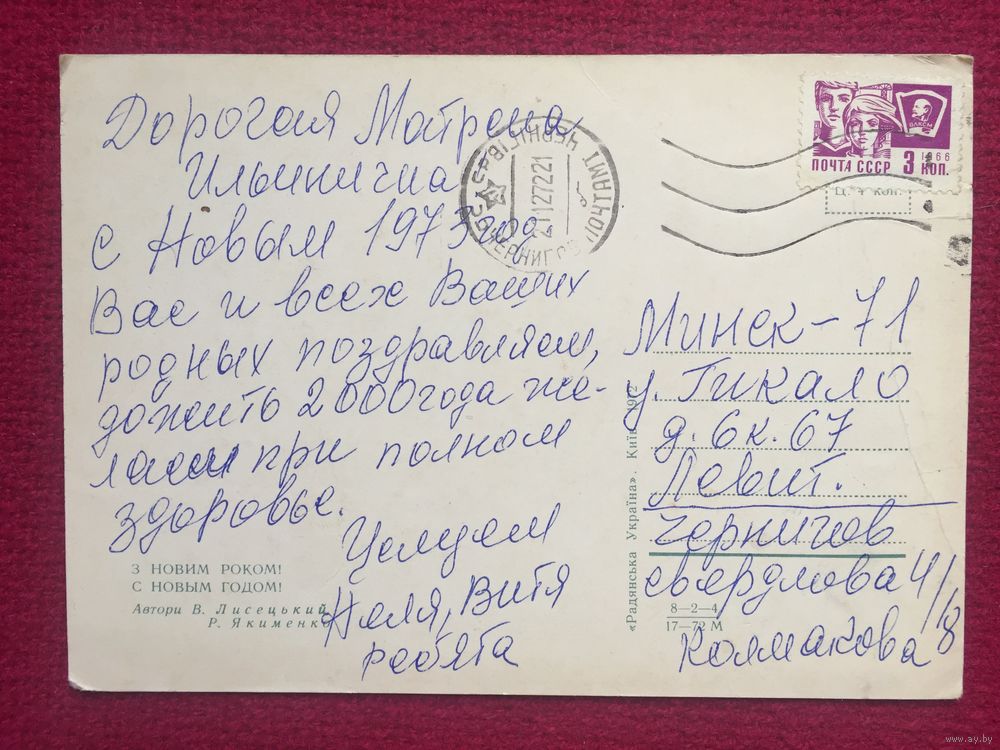 Дорогая Матрена
Ильинична
с Новым 1973 го
Вас и всех Ваших
родных поздравляем,
дожить 2000 года же-
лаем при полном
здоровье.
Целуем
Неля, Витя
ребята
З НОВИМ РОКОМ!
С НОВЫМ ГОДОМ!
Автори В. Лисецький,
Р. Якименко
«Радянська Україна». Київ 1972
ПОЧТАМТ ЧЕРНІГІВ
ЧЕРНИГОВ
ВЛКСМ
1966
ПОЧТА СССР 3 КОП.
Ц. 4 коп.
Минск-71
у. Гикало
д. 6 к. 67
Левит.
Чернигов
Свердлова 4/18
8—2—4
17—72 М
Колмакова
www.ay.by